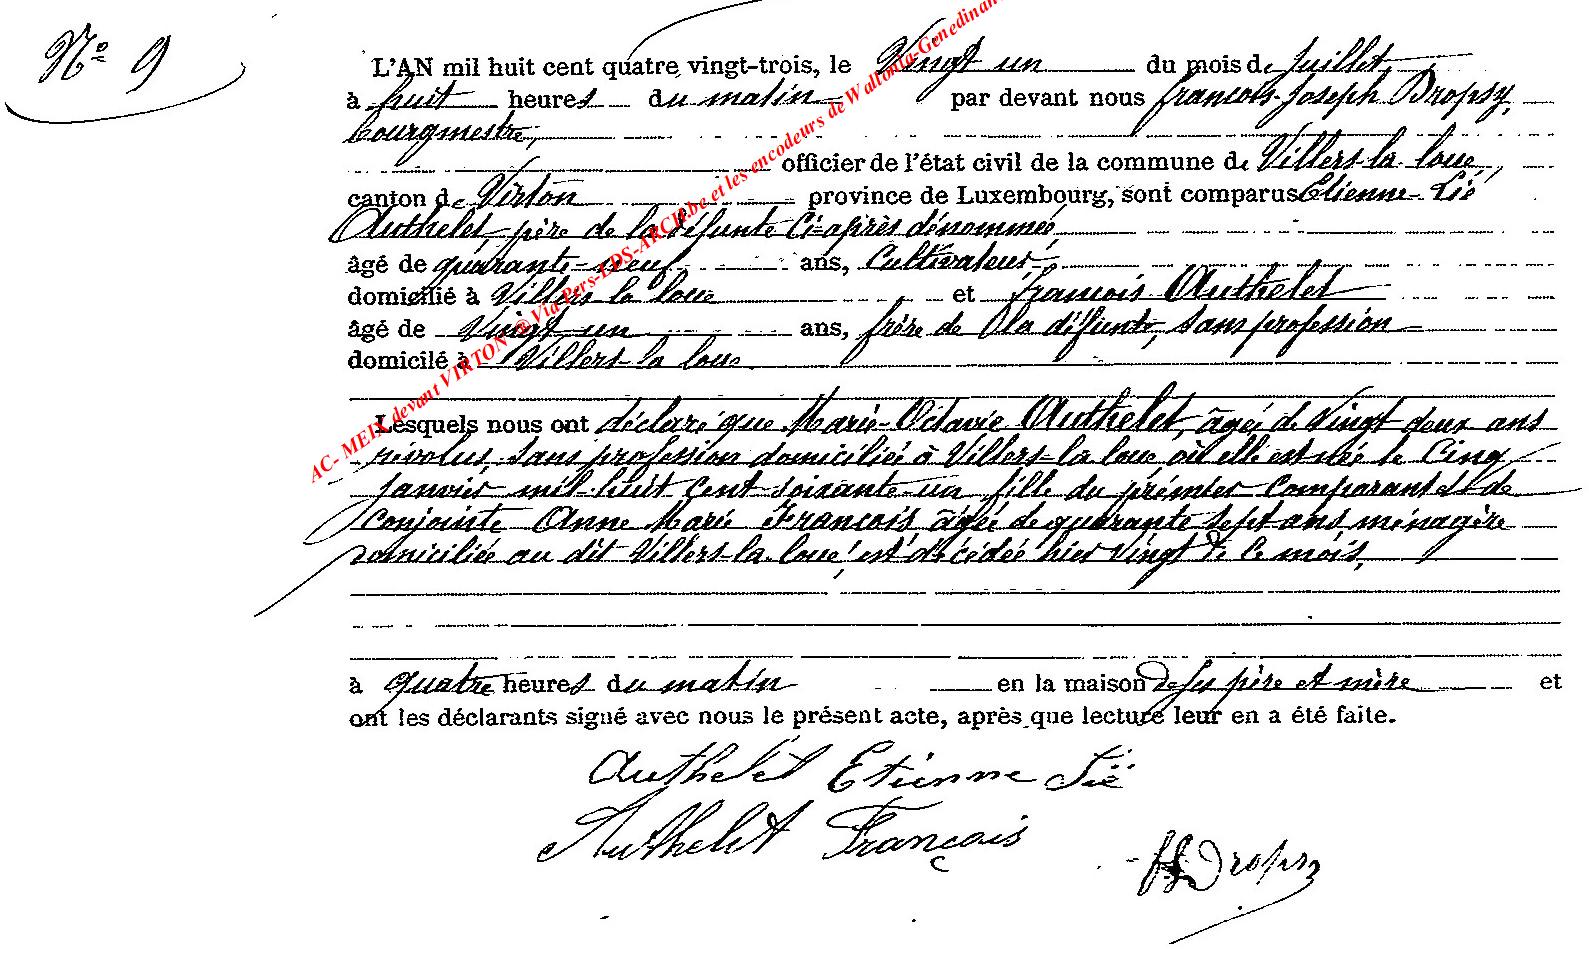 N° 9
L'AN mil huit cent quatre vingt-trois, le Vingt un du mois de Juillet
à huit heures du matin par devant nous François-Joseph Dropsy,
bourgmestre,
officier de l'état civil de la commune de Villers-la-loue,
canton de Virton province de Luxembourg, sont comparus Etienne-Lié
Authelet, père de la défunte Ci-après dénommée,
âgé de quarante-neuf ans, Cultivateur,
domicilié à Villers-la-loue et François Authelet
âgé de Vingt-un ans, frère de la défunte, sans profession
domicilé à Villers-la-loue
Lesquels nous ont déclaré que Marie-Octavie Authelet, âgée de Vingt deux ans
révolus, sans profession domiciliée à Villers-la-loue où elle est née le Cinq
Janvier mil-huit cent soixante-un fille du prémier comparant et de
conjointe Anne Marie François âgée de quarante sept ans ménagère
domiciliée au dit Villers-la-loue, est décédée hier Vingt de ce mois,
à quatre heures du matin en la maison de ses père et mère et
ont les déclarants signé avec nous le présent acte, après que lecture leur en a été faite.
Authelet Etienne Lié
Authelet François
Dropsy
AC- MEIX devant VIRTON @ Via Pers-LDS-ARCH.be et les encodeurs de Wallonia-Genedinant